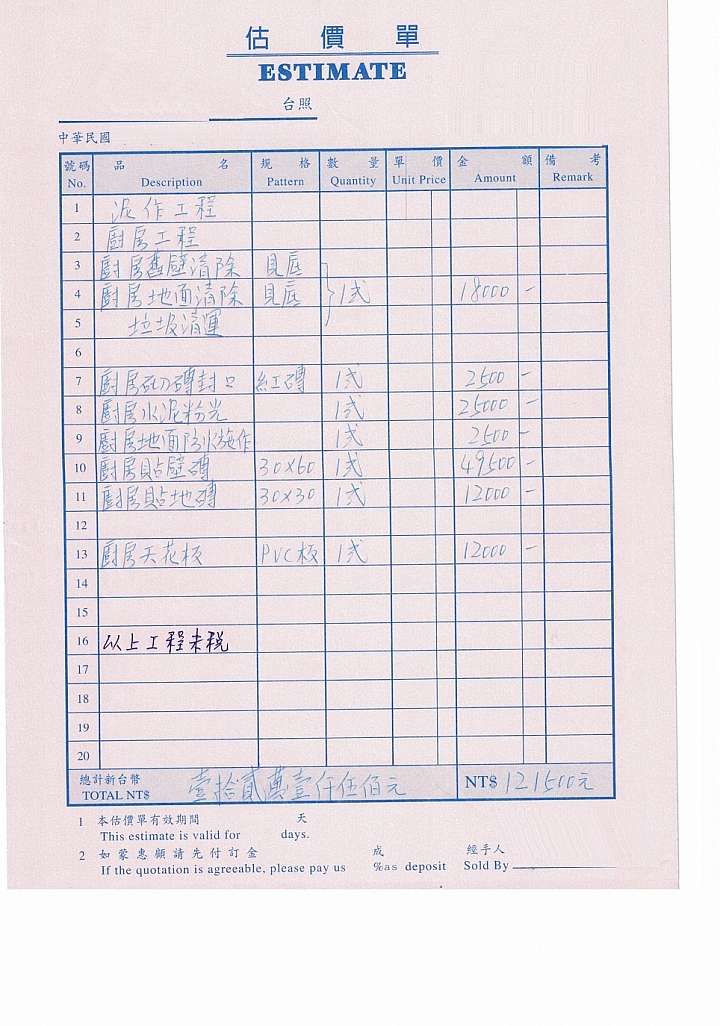 估價單
ESTIMATE
台照
中華民國
號碼 品名 規格 數量 單價 金額 備考
No. Description Pattern Quantity Unit Price Amount Remark
1 泥作工程
2 廚房工程
3 廚房舊壁清除 見底
4 廚房地面清除 見底 1式 18000 -
5 垃圾清運
6
7 廚房砌磚封口 紅磚 1式 2500 -
8 廚房水泥粉光 1式 25000 -
9 廚房地面防水施作 1式 2500 -
10 廚房貼壁磚 30x60 1式 49500 -
11 廚房貼地磚 30x30 1式 12000 -
12
13 廚房天花板 PVC板 1式 12000 -
14
15
16 以上工程未稅
17
18
19
20
總計新台幣 壹拾貳萬壹仟伍佰元 NT$ 121500元
TOTAL NT$
1 本估價單有效期間 天
This estimate is valid for days.
2 如蒙惠顧請先付訂金 成 經手人
If the quotation is agreeable, please pay us %as deposit Sold By